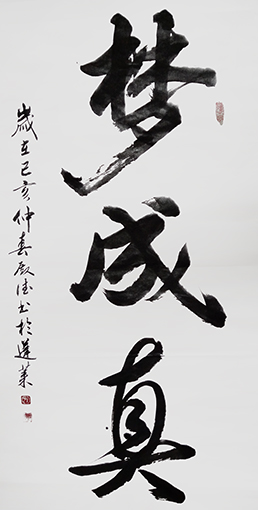 梦成真
岁在己亥仲春殿法书於蓬莱